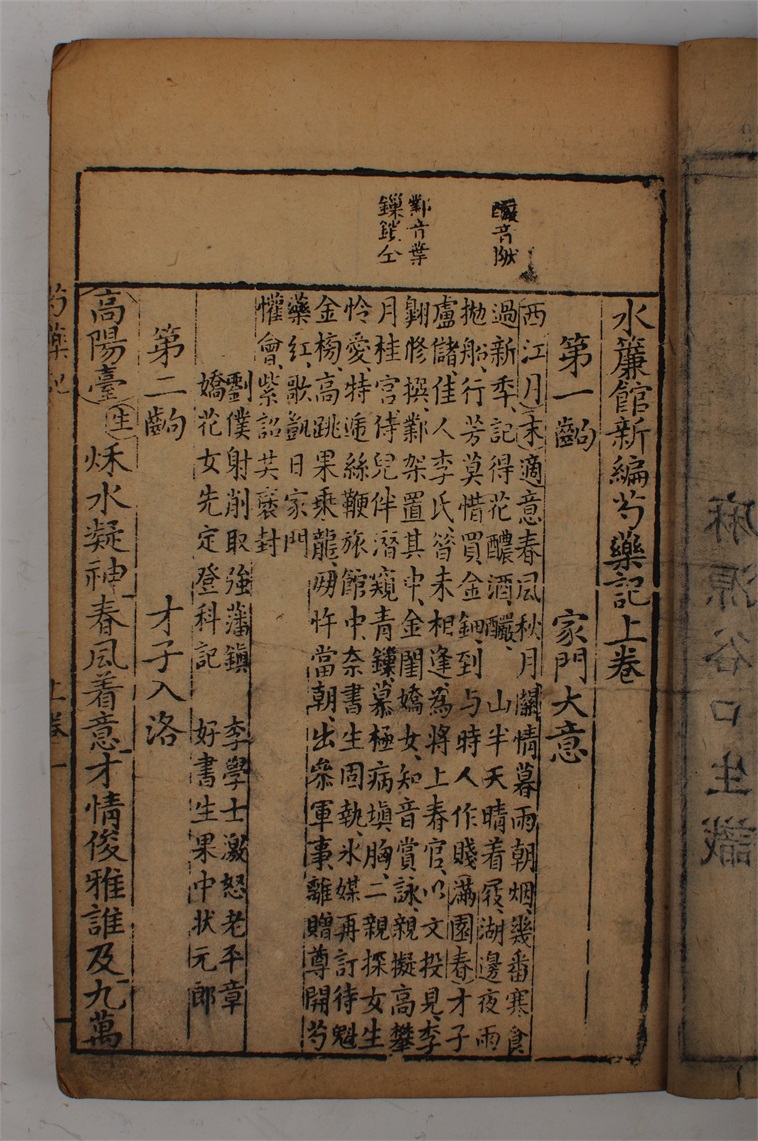 水簾館新編芍藥記上卷
第一齣 家門大意
西江月末適意春風秋月關情暮雨朝烟幾番寒食
過新季記得花醲酒釅 山半天晴着屐湖邊夜雨
拋船行芳莫惜買金鈿到与時人作賤滿園春才子
盧儲佳人李氏笤未相逢為將上春官以文投見李
翱修撰鄴架置其中金閨嬌女知音賞詠親擬高攀
月桂宮侍兒伴潛窺青鏁慕極病塡胸二親探女生
怜愛特遞絲鞭旅館中奈書生固執氷媒再訂待魁
金榜高跳果乘龍刕忤當朝出叅軍事離贈尊開芍
藥紅歌凱日家門
懽會紫詔茓褒封
劉僕射削取強藩鎮 李學士激怒老平章
嬌花女先定登科記 好書生果中狀元郎
第二齣 才子入洛
高陽臺生 秌水凝神春風着意才情俊雅誰及九萬
釅音
鄴音葉
鏁鎖仝
芍藥記
上卷 一
麻源谷口生識